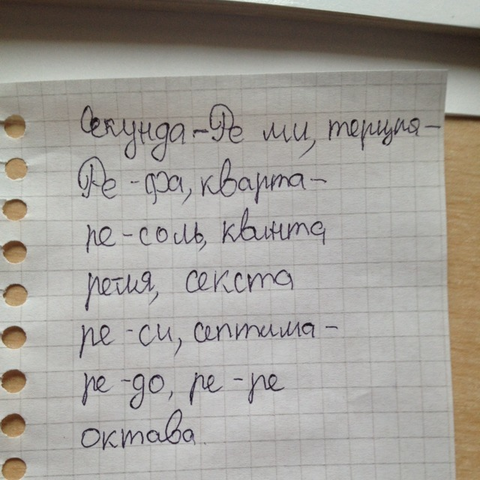 Секунда-Ре ми, терция-
Ре-фа, кварта-
ре-соль, квинта
реля, секста
ре-си, септима-
ре-до, ре-ре
октава.